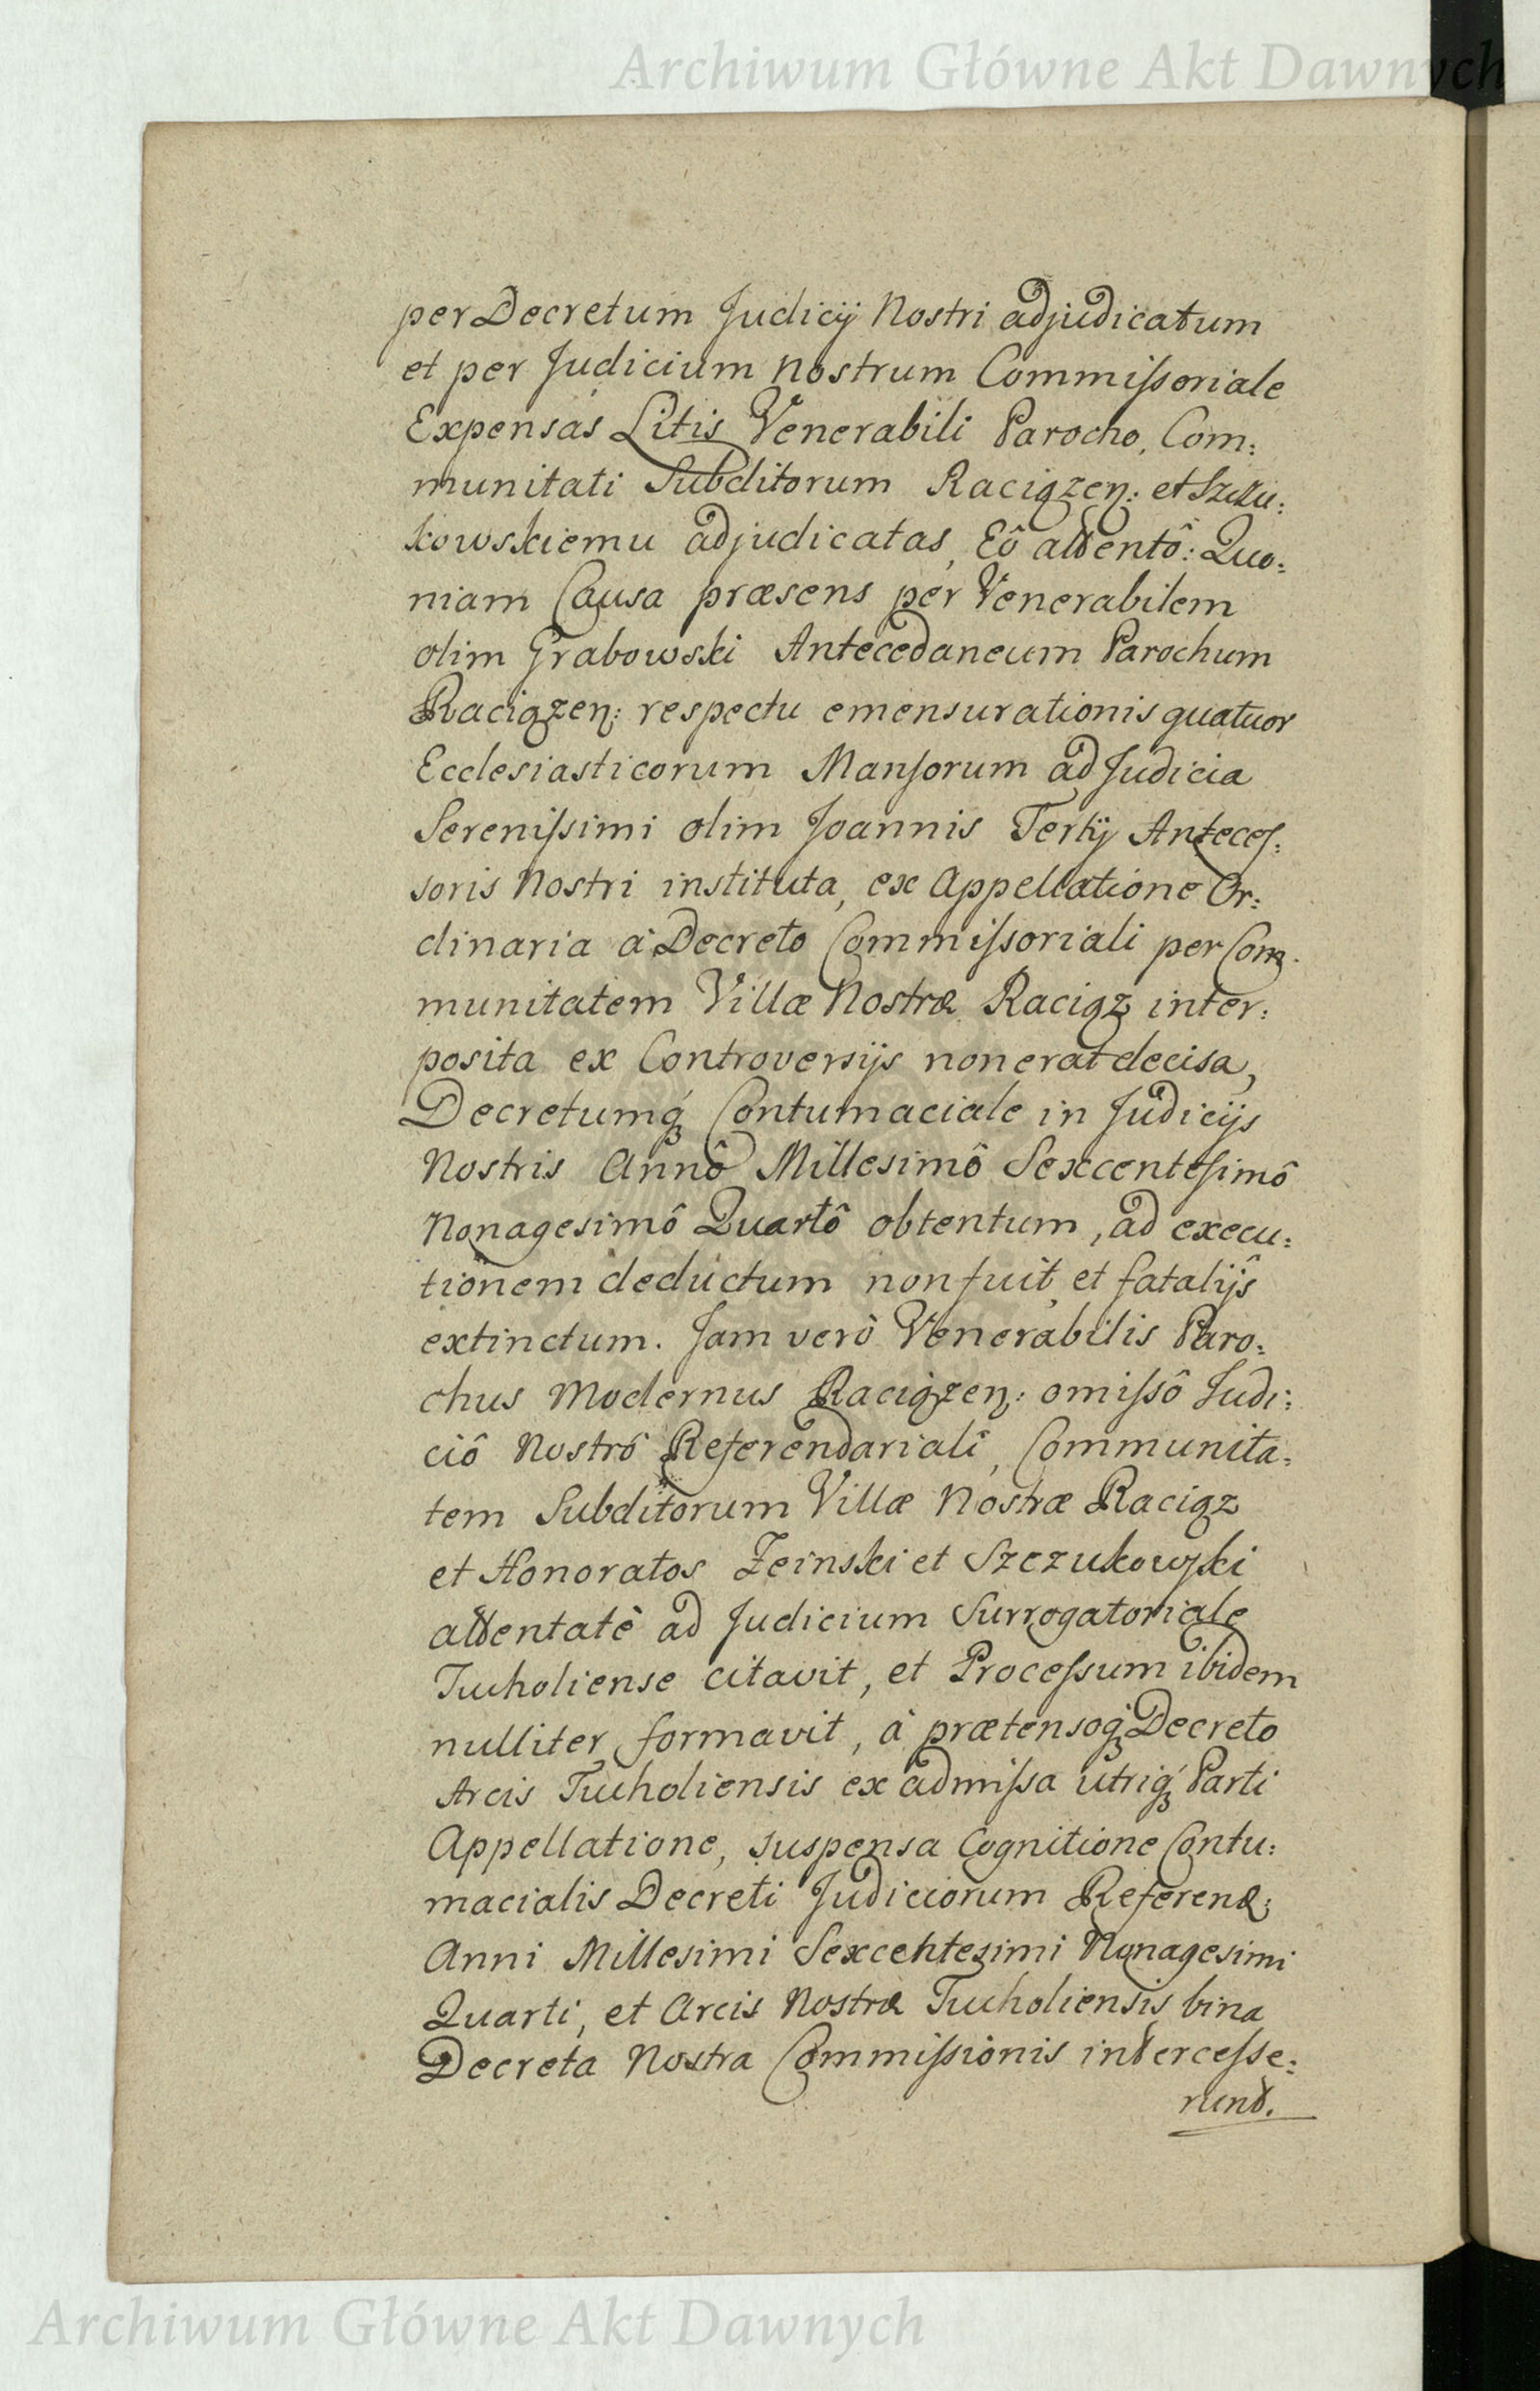 Archiwum Główne Akt Dawnych
per Decretum Judicij Nostri adjudicatum
et per Judicium nostrum Commiſsoriale
Expensas Litis Venerabili Parocho, Com:
munitati Subditorum Raciązen: et Szczu:
kowskiemu adjudicatas, Eô attentô: Quo:
niam Causa præsens per Venerabilem
olim Grabowski Antecedaneum Parochum
Raciązen: respectu emensurationis quatuor
Ecclesiasticorum Manſorum ad Judicia
Sereniſsimi olim Joannis Tertij Anteceſ:
soris Nostri instituta, ex Appellatione Or:
dinaria à Decreto Commiſsoriali per Com:
munitatem Villæ Nostræ Raciąz inter:
posita ex Controversijs non erat decisa,
Decretumq́ Contumaciale in Judicijs
Nostris Annô Millesimô Sexcenteſimô
Nonagesimô Quartô obtentum, ad execu:
tionem deductum non fuit, et fatalijs
extinctum. Jam verò Venerabilis Paro:
chus Modernus Raciązen: omiſsô Judi:
ciô Nostrô Referendariali, Communita:
tem Subditorum Villæ Nostræ Raciąz
et Honoratos Zeinski et Szczukowſki
attentatè ad Judicium Surrogatoriale
Tucholiense citavit, et Proceſsum ibidem
nulliter formavit, à prætensoq́ Decreto
Arcis Tucholiensis ex admiſsa utriq́ Parti
Appellatione, suspensa Cognitione Contu:
macialis Decreti Judiciorum Referend:
Anni Millesimi Sexcentesimi Nonagesimi
Quarti, et Arcis Nostræ Tucholiensis, bina
Decreta Nostra Commiſsionis interceſse:
runt.
Archiwum Główne Akt Dawnych